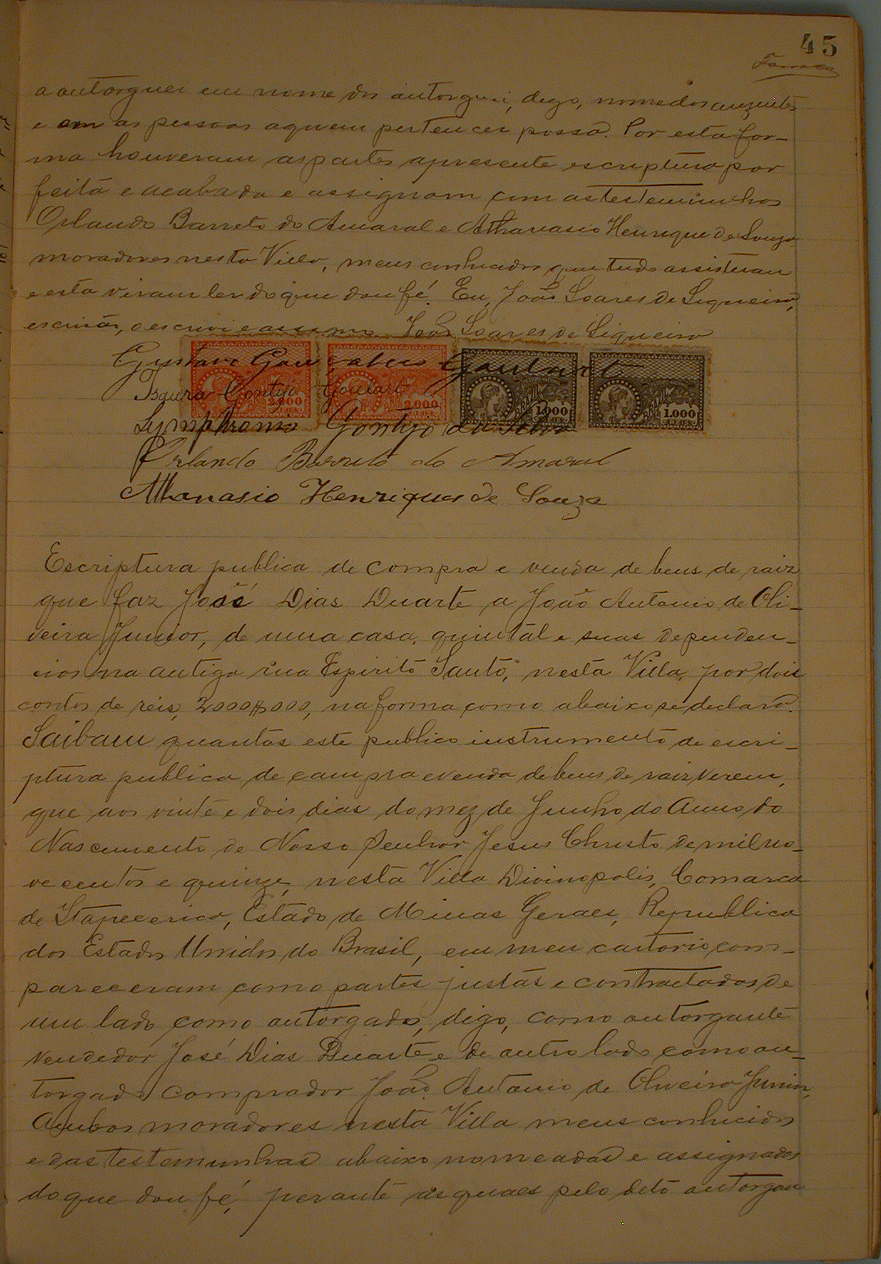 45
a outorguei em nome dos outorgu, digo, nome dos auzentes
e em as pessoas aquem pertencer possa. Por esta for-
ma houveram as partes apresente escriptura por
feita e acabada e assignam com as testemunhas
Orlando Barreto do Amaral e Athanasio Henrique de Souza
moradores nesta Villa, meus conhecidos que tudo assistiram
e esta viram ler do que dou fé. Eu, João Soares de Siqueira,
escrivão, o escrevi e assigno. João Soares de Siqueira
Gustavo Gonçalves Goulart
Isaura Gontijo Goulart
2.000
2.000
1.000
1.000
Symphronio Gontijo da Silva
Orlando Barreto do Amaral
Athanasio Henriques de Souza
Escriptura publica de compra e venda de bens de raiz
que faz José Dias Duarte a João Antonio de Oli-
veira Junior, de uma casa, quintal e suas dependen-
cias na antiga rua Espirito Santo, nesta Villa, por dois
contos de reis, 2000$000, na forma como abaixo se declara.
Saibam quantos este publico instrumento de escri-
ptura publica de compra e venda de bens de raiz virem,
que aos vinte e dois dias do mez de Junho do Anno do
Nascimento de Nosso Senhor Jesus Christo de mil no-
vecentos e quinze, nesta Villa Divinopolis, Comarca
de Itapecerica, Estado de Minas Geraes, Republica
dos Estados Unidos do Brasil, em meu cartorio com-
pareceram como partes justas e contractadas de
um lado como outorgado, digo, como outorgante
vendedor José Dias Duarte e de outro lado como ou-
torgado comprador João Antonio de Oliveira Junior,
Ambos moradores nesta Villa meus conhecidos
e das testemunhas abaixo nomeadas e assignadas
do que dou fé, perante as quaes pelo dito outorgan